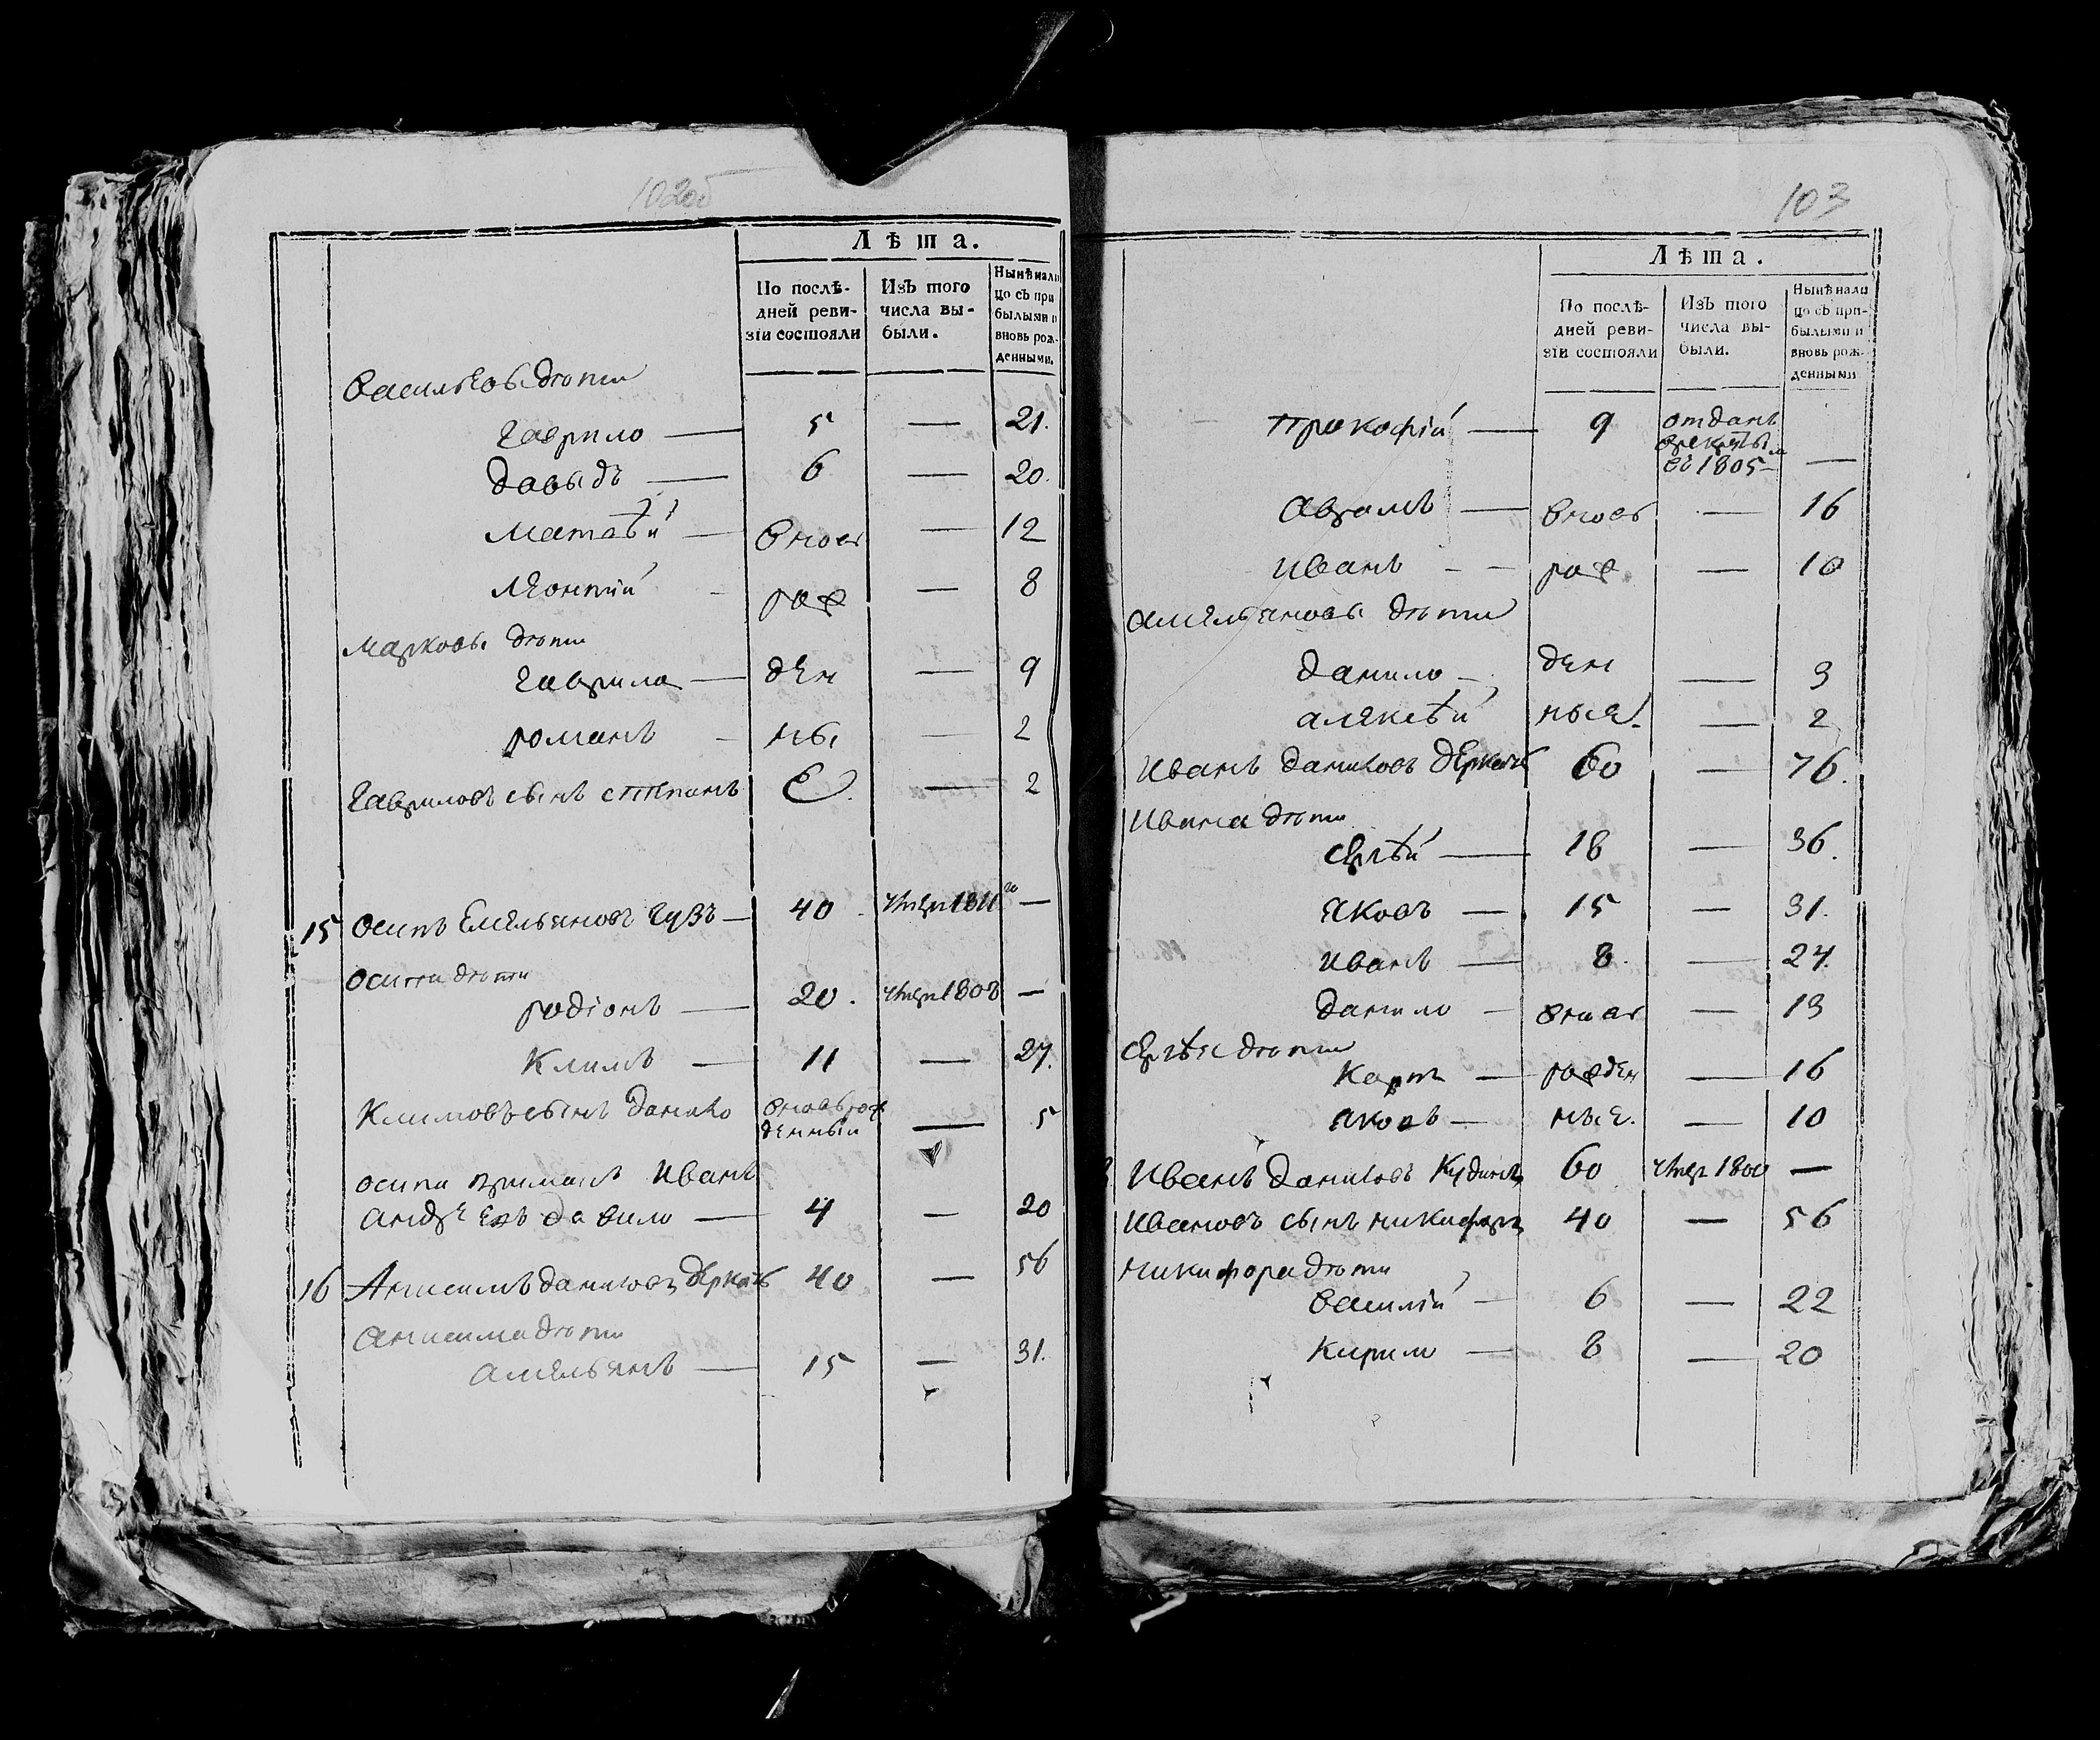 102об
Лѣта.
По послѣ-
дней реви-
зіи состояли
Изъ того
числа вы-
были.
Нынѣ нали
цо съ при
былыми и
вновь рож-
денными.
Васильевы дѣти
Гаврило — 5 — 21.
Давыдъ — 6 — 20.
Матвѣй — вновь — 12
Леонтий рож — 8
Марковы дѣти
Гаврила — ден — 9
романъ ны — 2
Гавриловъ сынъ степанъ е. — 2
15 Осипъ Емельяновъ Гузъ — 40 умер 1811го —
Осипа дѣти
родіонъ — 20. умер 1808 —
Климъ — 11 — 27.
Климовъ сынъ Данило вновь рож
денный — 5
осипа приимакъ Иванъ
4 — 20
16 Анисимъ Даниловъ Деркачь 40 — 56
Анисима дѣти
Амельянъ — 15 — 31.
103
Лѣта.
По послѣ-
дней реви-
зіи состояли
Изъ того
числа вы-
были.
Нынѣ нали
цо съ при-
былыми и
вновь рож-
денными
Прокофій — 9 отданъ
врекруты
въ 1805 —
Аврамъ — вновь — 16
Иванъ — рож. — 10
Амельяновы дѣти
Данило — ден — 3
алексѣй ные. — 2
Иванъ Даниловъ Деркачь 60 — 76.
Ивана дѣти
Сергѣй — 18 — 36.
Яковъ — 15 — 31.
Иванъ — 8. — 24.
Данило — вновь — 13
Сергѣя дѣти
Карпъ — рожден — 16
Яковъ — ные. — 10
Иванъ Даниловъ 60 умер 1800 —
Ивановъ сынъ никифоръ 40 — 56
Никифора дѣти
Василій — 6 — 22
Кирило — 8 — 20